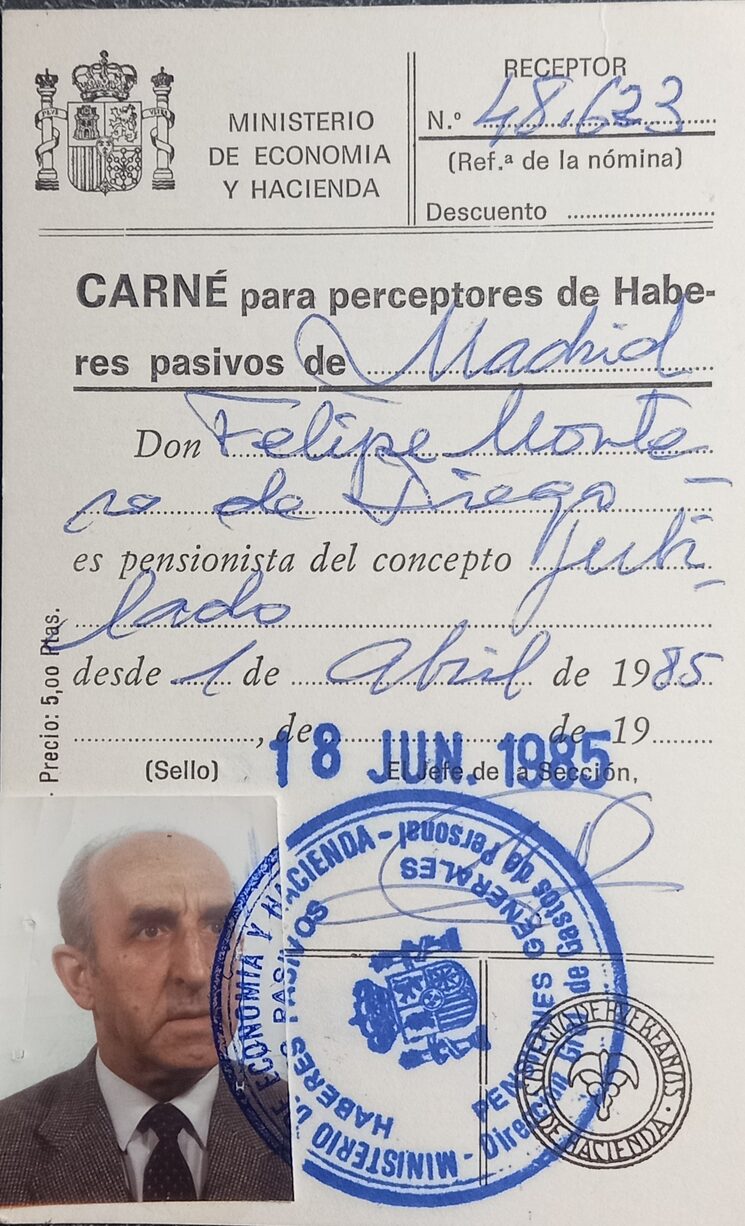 PLVS VLTRA
MINISTERIO
DE ECONOMIA
Y HACIENDA
RECEPTOR
N.º 48.623
(Ref.ª de la nómina)
Descuento
CARNÉ para perceptores de Habe-
res pasivos de Madrid
Don Felipe Monte
ro de Diego -
es pensionista del concepto jubi-
lado
desde 1 de Abril de 1985
, de de 19
18 JUN. 1985
(Sello) El Jefe de la Sección,
Precio: 5,00 Ptas.
MINISTERIO DE ECONOMIA Y HACIENDA - Dirección Gral. de Gastos de Personal -
HABERES PASIVOS
PENSIONES GENERALES
COLEGIO DE HUERFANOS
DE HACIENDA